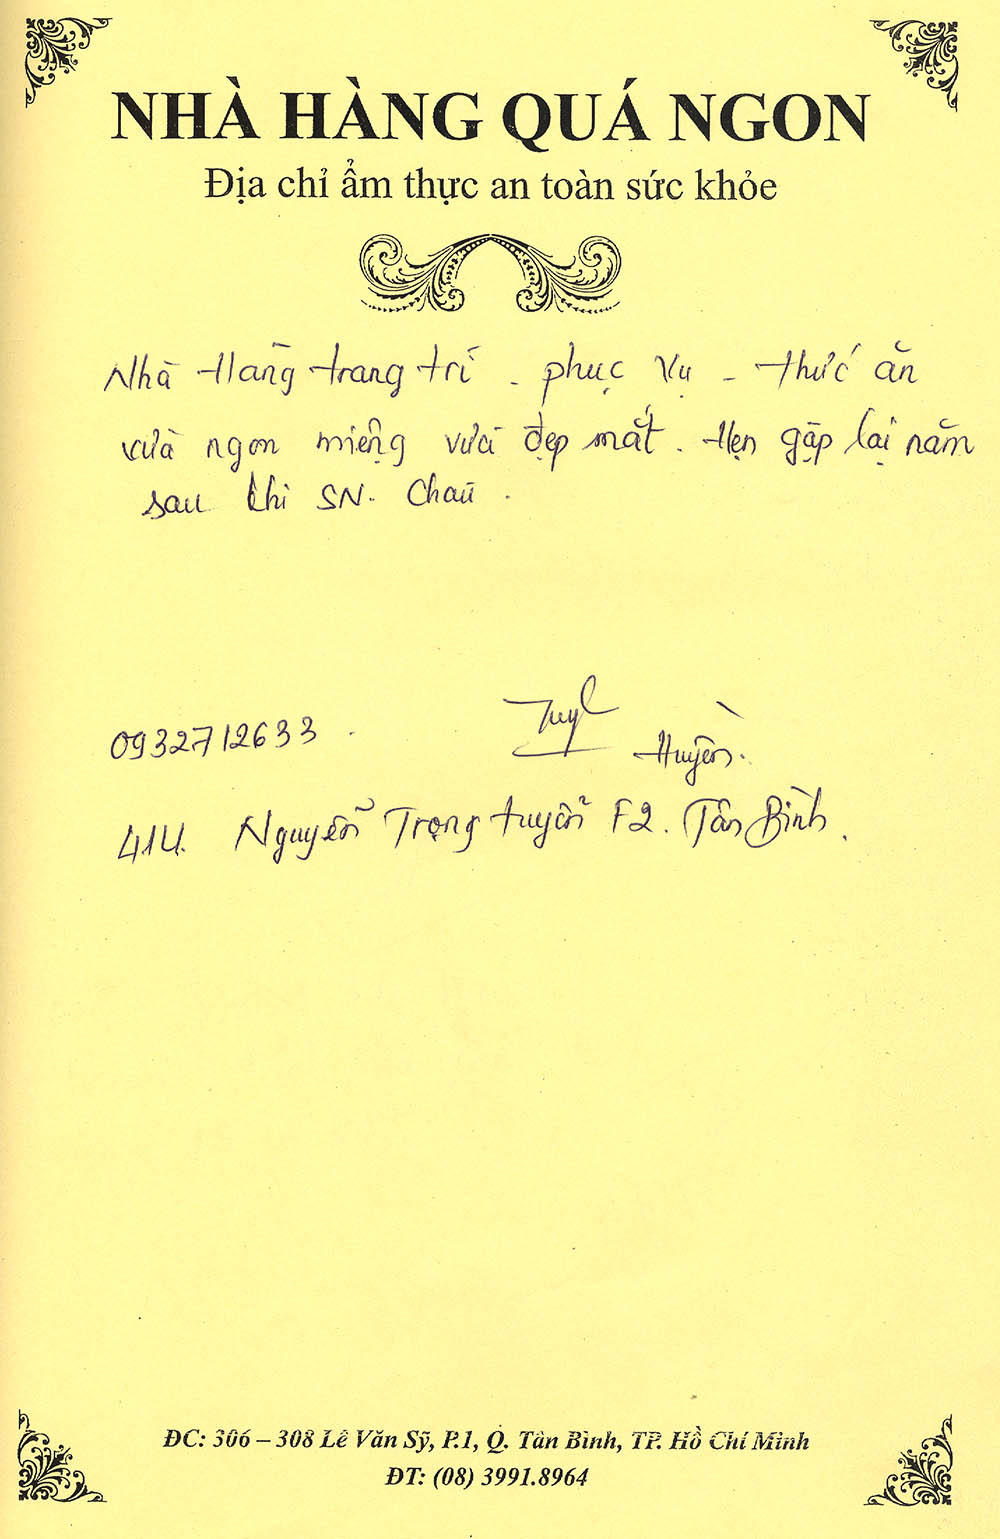 NHÀ HÀNG QUÁ NGON
Địa chỉ ẩm thực an toàn sức khỏe
Nhà Hàng trang trí - phục vụ - thức ăn
vừa ngon miệng vừa đẹp mắt. Hẹn gặp lại năm
sau khi SN. Cháu.
0932712633.
Huyền.
414. Nguyễn Trọng tuyển F2. Tân Bình.
ĐC: 306 – 308 Lê Văn Sỹ, P.1, Q. Tân Bình, TP. Hồ Chí Minh
ĐT: (08) 3991.8964